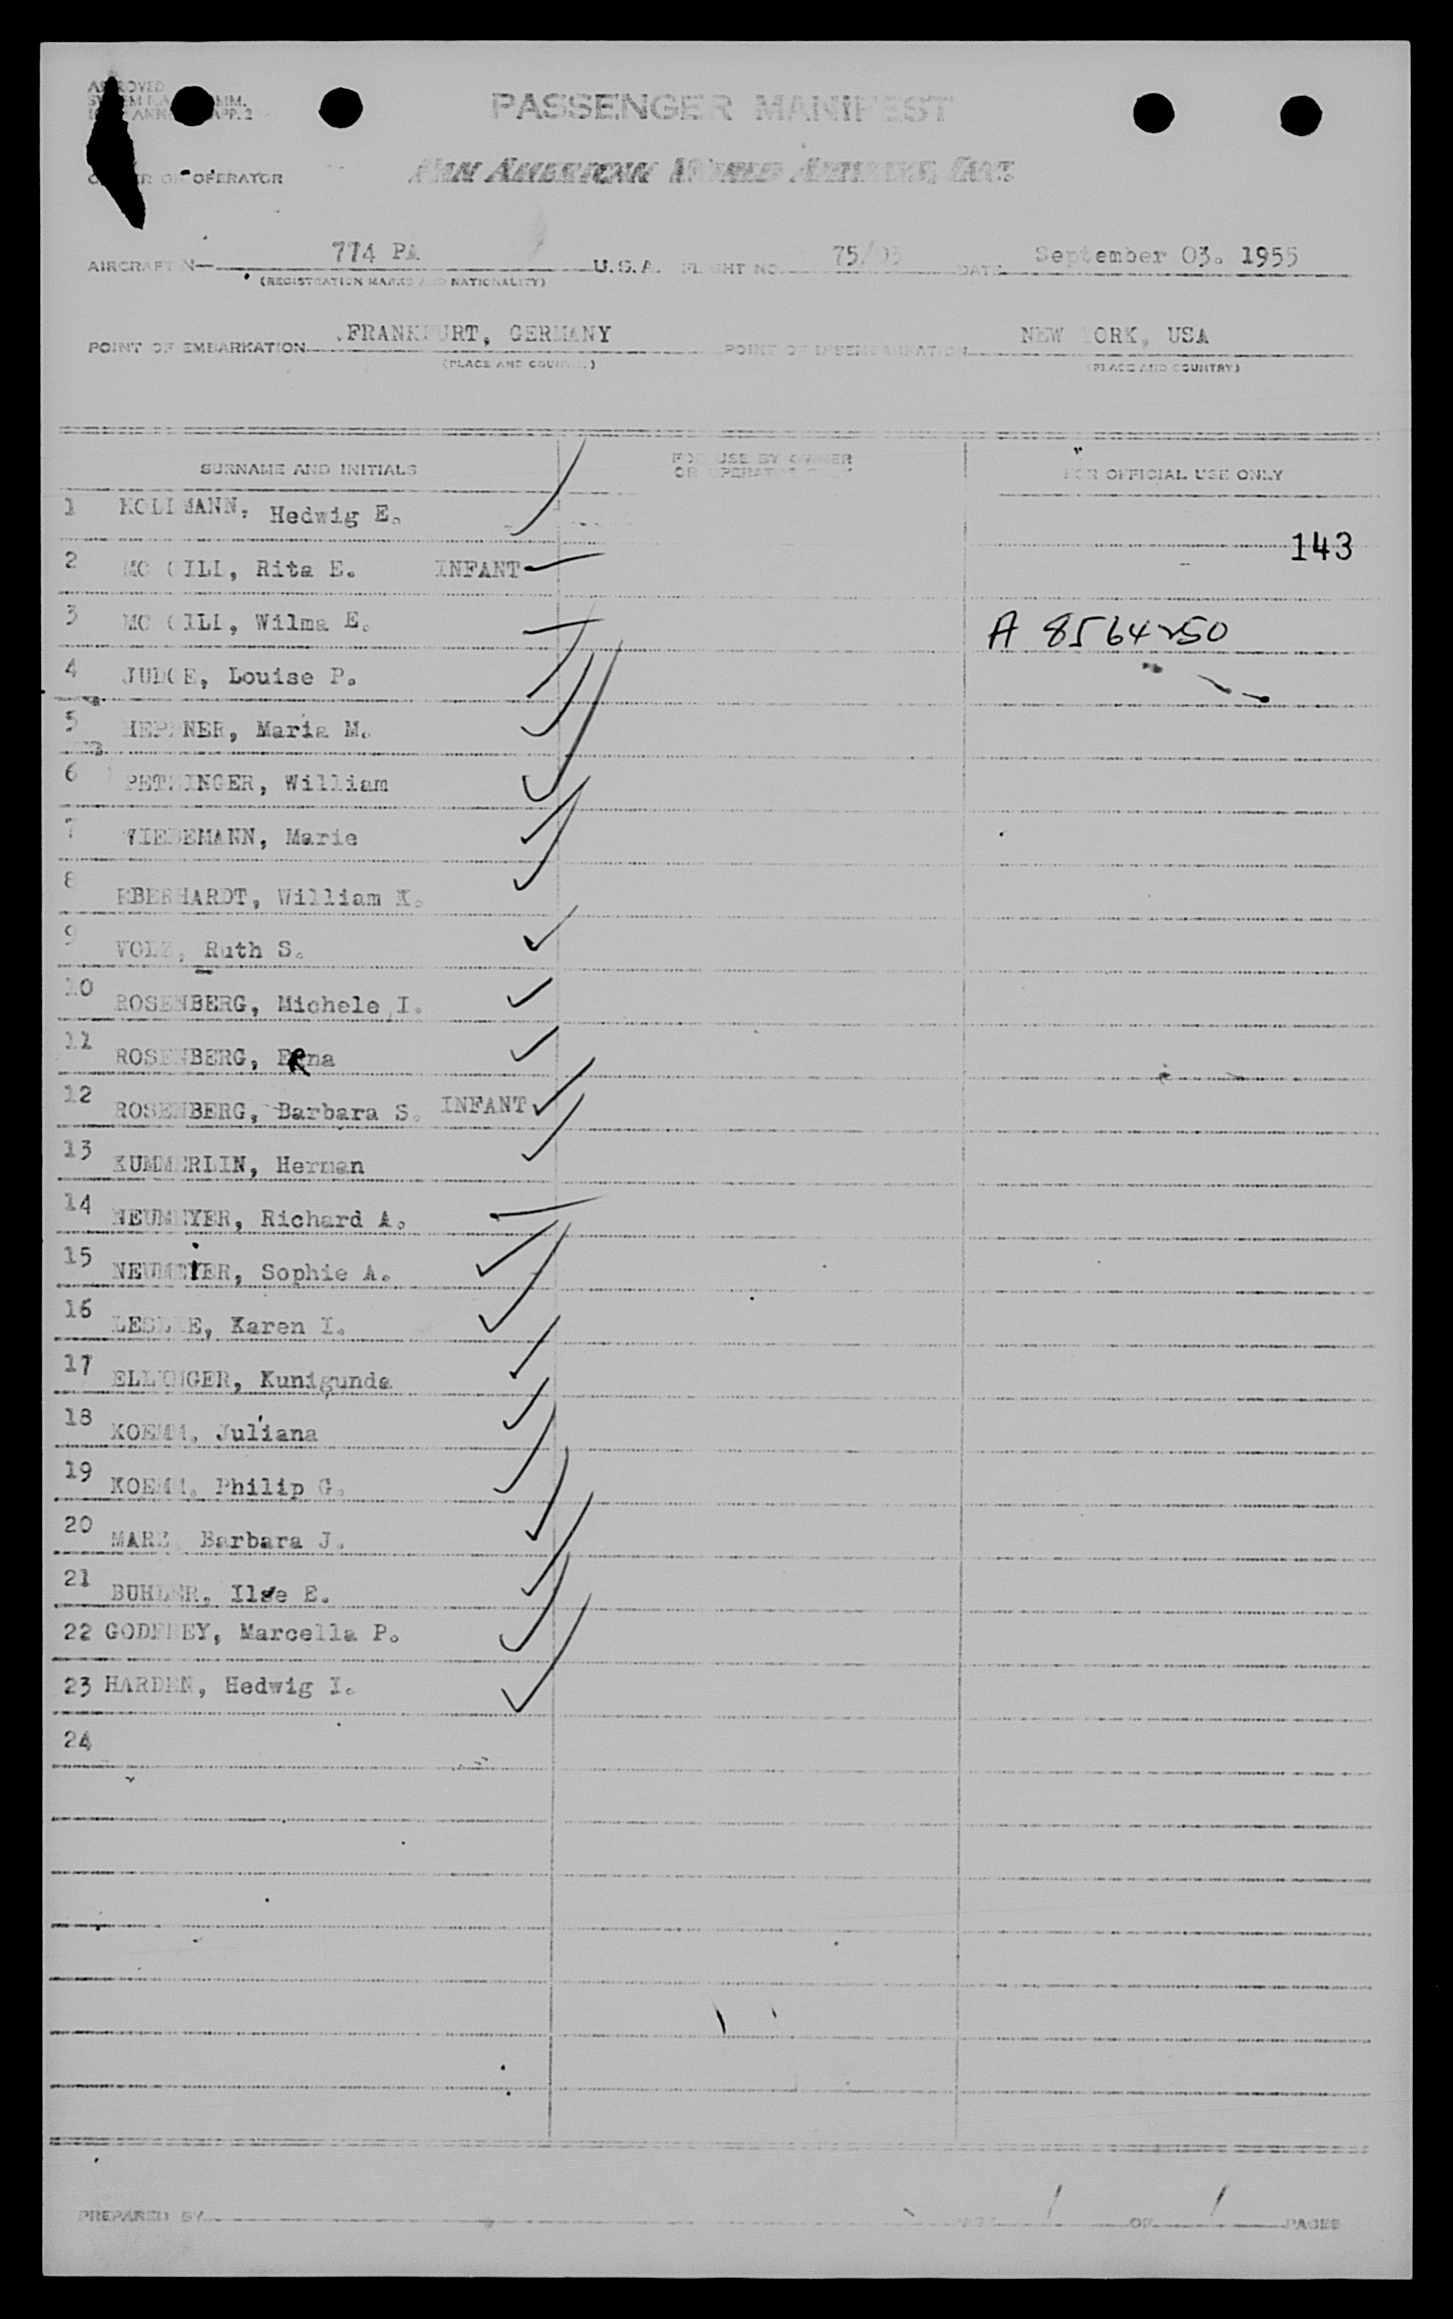 PASSENGER MANIFEST
OR OPERATOR
PAN AMERICAN WORLD AIRWAYS, INC.
AIRCRAFT N— 774 PA U.S.A. FLIGHT NO. 75/03 DATE September 03. 1955
(REGISTRATION MARKS AND NATIONALITY)
POINT OF EMBARKATION FRANKFURT, GERMANY POINT OF DISEMBARKATION NEW YORK, USA
(PLACE AND COUNTRY) (PLACE AND COUNTRY)
SURNAME AND INITIALS FOR USE BY OWNER OR OPERATOR ONLY FOR OFFICIAL USE ONLY
1 Hedwig E.
143
2 MC GILL, Rita E. INFANT
3 MC GILL, Wilma E. A 8564250
4 JUDGE, Louise P.
5 HEPPNER, Maria M.
6 William
7 WIEDEMANN, Marie
8 EBERHARDT, William K.
9 VOLZ, Ruth S.
10 ROSENBERG, Michele I.
11 ROSENBERG, Erna
12 ROSENBERG, Barbara S. INFANT
13 KUMMERLIN, Herman
14 NEUMEYER, Richard A.
15 NEUMEIER, Sophie A.
16 LESLIE, Karen I.
17 Kunigunda
18 KOEMM, Juliana
19 KOEMM, Philip G.
20 Barbara J.
21 BUHLER, Ilse E.
22 GODFREY, Marcella P.
23 HARDEN, Hedwig I.
24
PREPARED BY 1 OF 1 PAGES